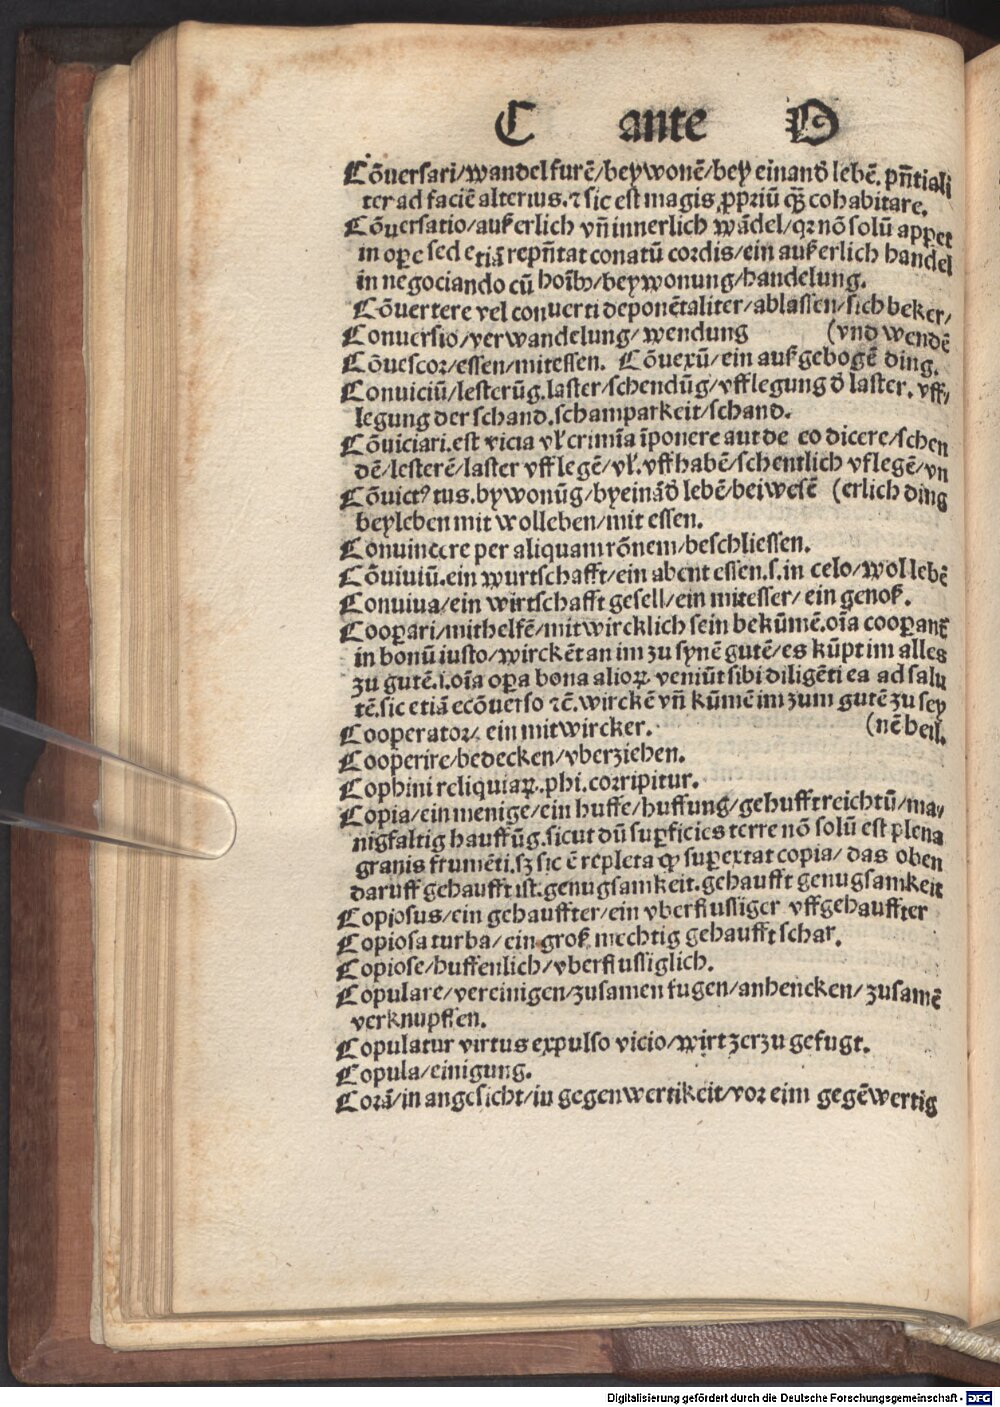 C ante O
Cõuersari/wandel furẽ/bey wonẽ/bey einand̕ lebẽ. pñtiali
ter ad faciẽ alterius. ⁊ sic est magis ꝓpriũ qȝ̃ cohabitare.
Cõuersatio/auß erlich vñ innerlich wãdel/qꝛ nõ solũ appet
in oꝑe sed etiã repñtat conatũ cordis/ein auß erlich handel
in negociando cũ hoĩbꝰ/beywonung/handelung.
Cõuertere vel conuerti deponẽtaliter/ablassen/sich beker/
Conuersio/verwandelung/wendung (vnd wendẽ
Cõuescor/essen/mitessen. Cõuexũ/ein auß gebogẽ ding.
Conuiciũ/lesterũg. laster/schendũg/vfflegung d̕ laster. vff/
legung der schand. schamparkeit/schand.
Cõuiciari. est vicia vl̕ crimĩa ĩponere aut de eo dicere/schen
dẽ/lesterẽ/laster vfflegẽ/vl̕. vffhabẽ/schentlich vflegẽ/vn
Cõuictꝰ tus. bywonũg/byeinãd̕ lebẽ/beiwesẽ (erlich ding
beyleben mit wolleben/mit essen.
Conuincere per aliquam rõnem/beschliessen.
Cõuiuiũ. ein wurtschafft/ein abent essen. s. in celo/wol lebẽ
Conuiua/ein wirtschafft gesell/ein mitesser/ein genoß.
Cooꝑari/mithelfẽ/mitwircklich sein bekũmẽ. oĩa cooꝑant̃
in bonũ iusto/wirckẽt an im zu synẽ gutẽ/es kũpt im alles
zu gutẽ. i. oĩa oꝑa bona alioꝝ veniũt sibi diligẽti ea ad salu
tẽ. sic etiã ecõuerso ⁊c̃. wirckẽ vñ kũmẽ im zum gutẽ zu sey
Cooperator/ ein mitwircker. (nẽ heil.
Cooperire/bedecken/vberziehen.
Cophini reliquiaꝝ. phi. corripitur.
Copia/ein menige/ein huffe/huffung/gehufft reichtũ/ma/
nigfaltig hauffũg. sicut dũ suꝑficies terre nõ solũ est plena
granis frumẽti. sȝ sic ẽ repleta ꝙ suꝑextat copia/das oben
daruff gehaufft ist. genugsamkeit. gehaufft genugsamkeit
Copiosus/ein gehauffter/ein vberflussiger vffgehauffter
Copiosa turba/ein groß mechtig gehaufft schar.
Copiose/huffenlich/vberflussiglich.
Copulare/vereinigen/zusamen fugen/anhencken/zusamẽ
verknupffen.
Copulatur virtus expulso vicio/wirt zerzu gefugt.
Copula/einigung.
Corã/in angesicht/in gegenwertikeit/vor eim gegẽwertig
Digitalisierung gefördert durch die Deutsche Forschungsgemeinschaft - DFG